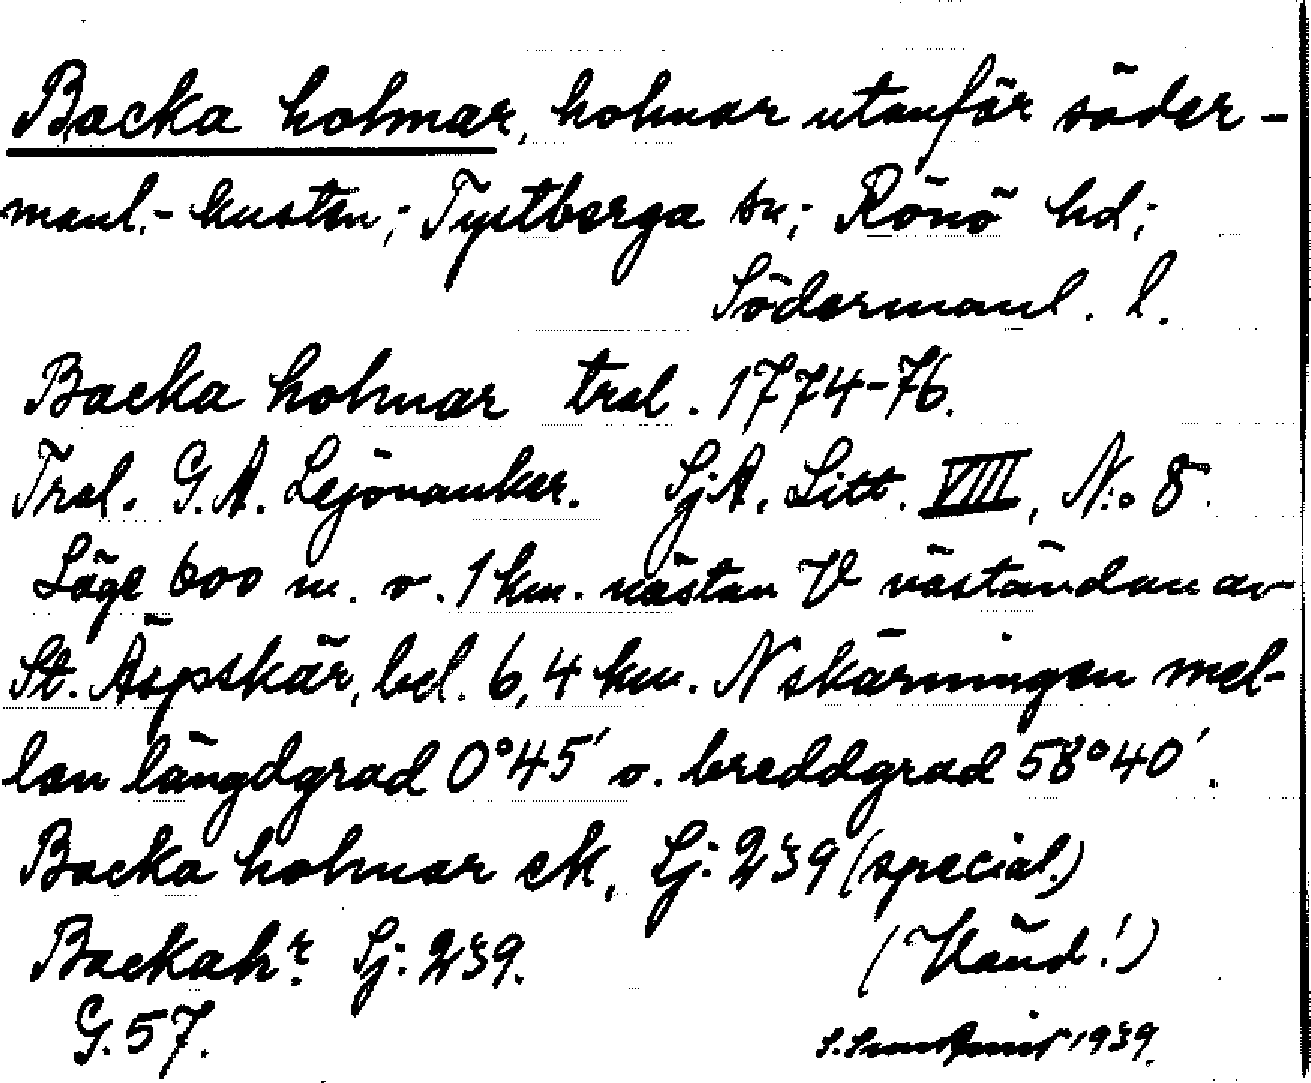 Backa holmar, holmar utanför söder-
manl.- kusten; Tystberga sn; Rönö hd;
Södermanl. l.
Backa holmar trol. 1774-76.
Trol. G.A. Lejonanker. Sj.A. Litt. VIII, N:o 8.
Läge 600 m. o. 1 km. nästan V väständan av
St. Äspskär, bel. 6,4 km. N skärningen mel-
lan längdgrad 0°45' o. breddgrad 58°40'.
Backa holmar ek, Sj: 239 (special.)
Backahr: Sj: 239. (Vänd!)
G. 57.
1939.